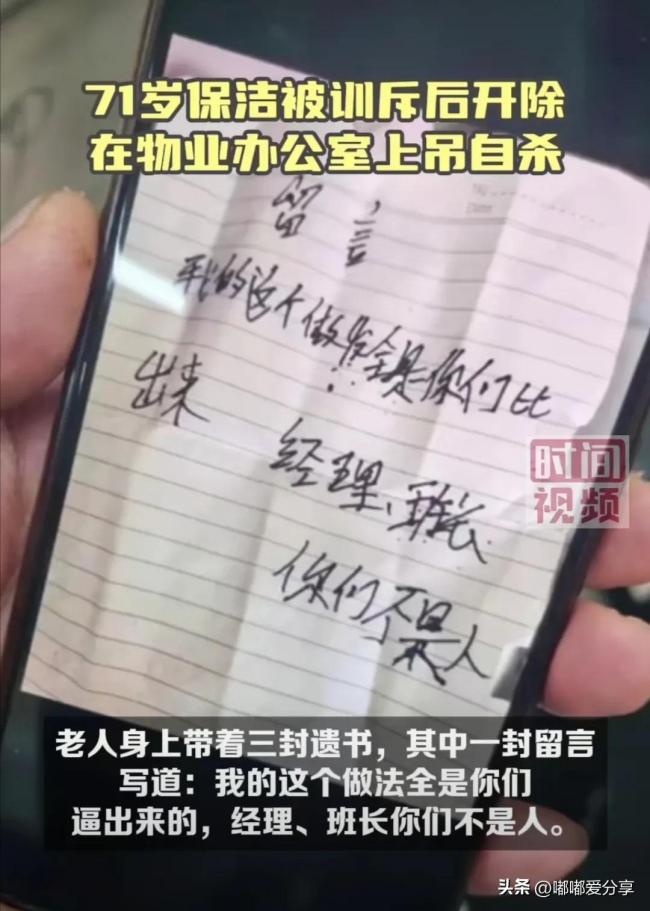 71岁保洁被训斥后开除
在物业办公室上吊自杀
No
Date
留言
我的这个做发全是你们比
出来
经理、班长
你们不是人
时间
视频
老人身上带着三封遗书，其中一封留言
写道：我的这个做法全是你们
逼出来的，经理、班长你们不是人。
头条 @嘟嘟爱分享